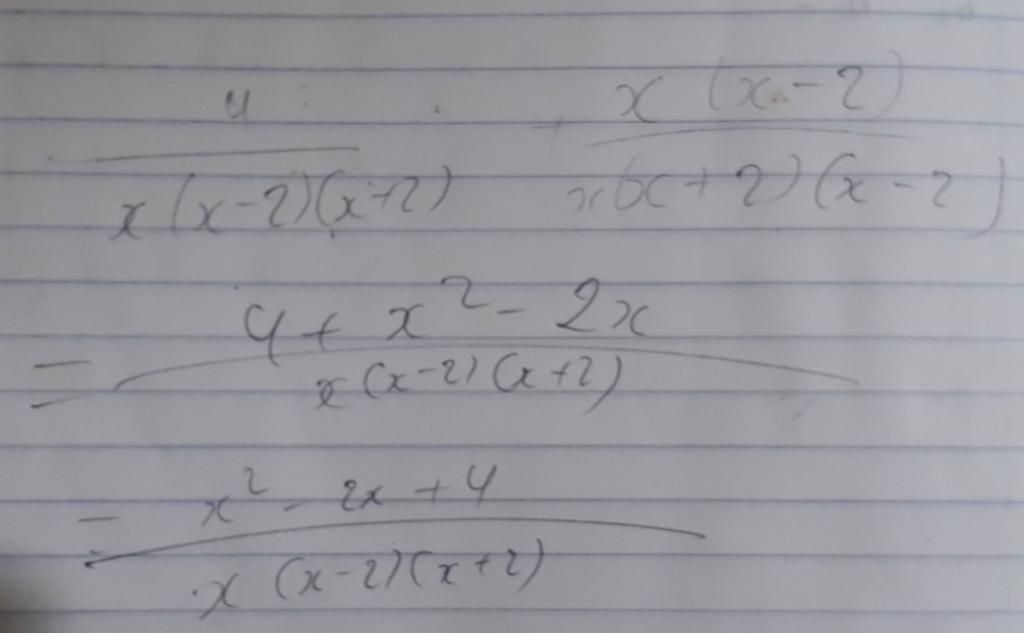 4 / x(x-2)(x+2) + x(x-2) / x(x+2)(x-2)
= 4 + x² - 2x / x(x-2)(x+2)
= x² - 2x + 4 / x(x-2)(x+2)